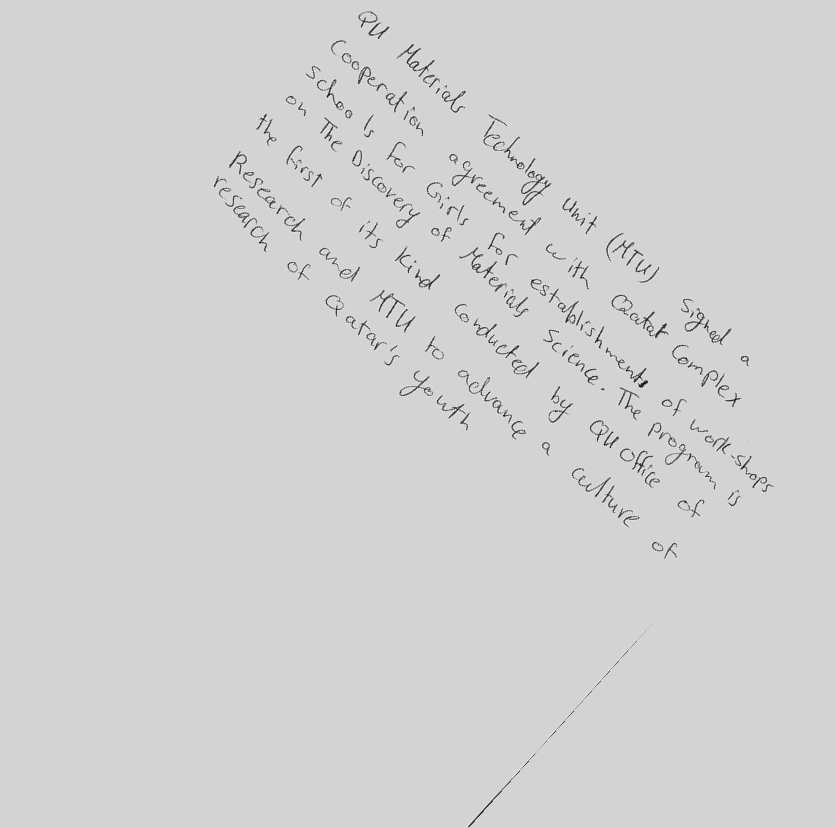 QU Materials Technology Unit (MTU) signed a
Cooperation agreement with Qatar Complex
schools for Girls for establishments of work-shops
on The Discovery of Materials Science. The program is
the first of its kind conducted by QU office of
Research and MTU to advance a culture of
research of Qatar's youth